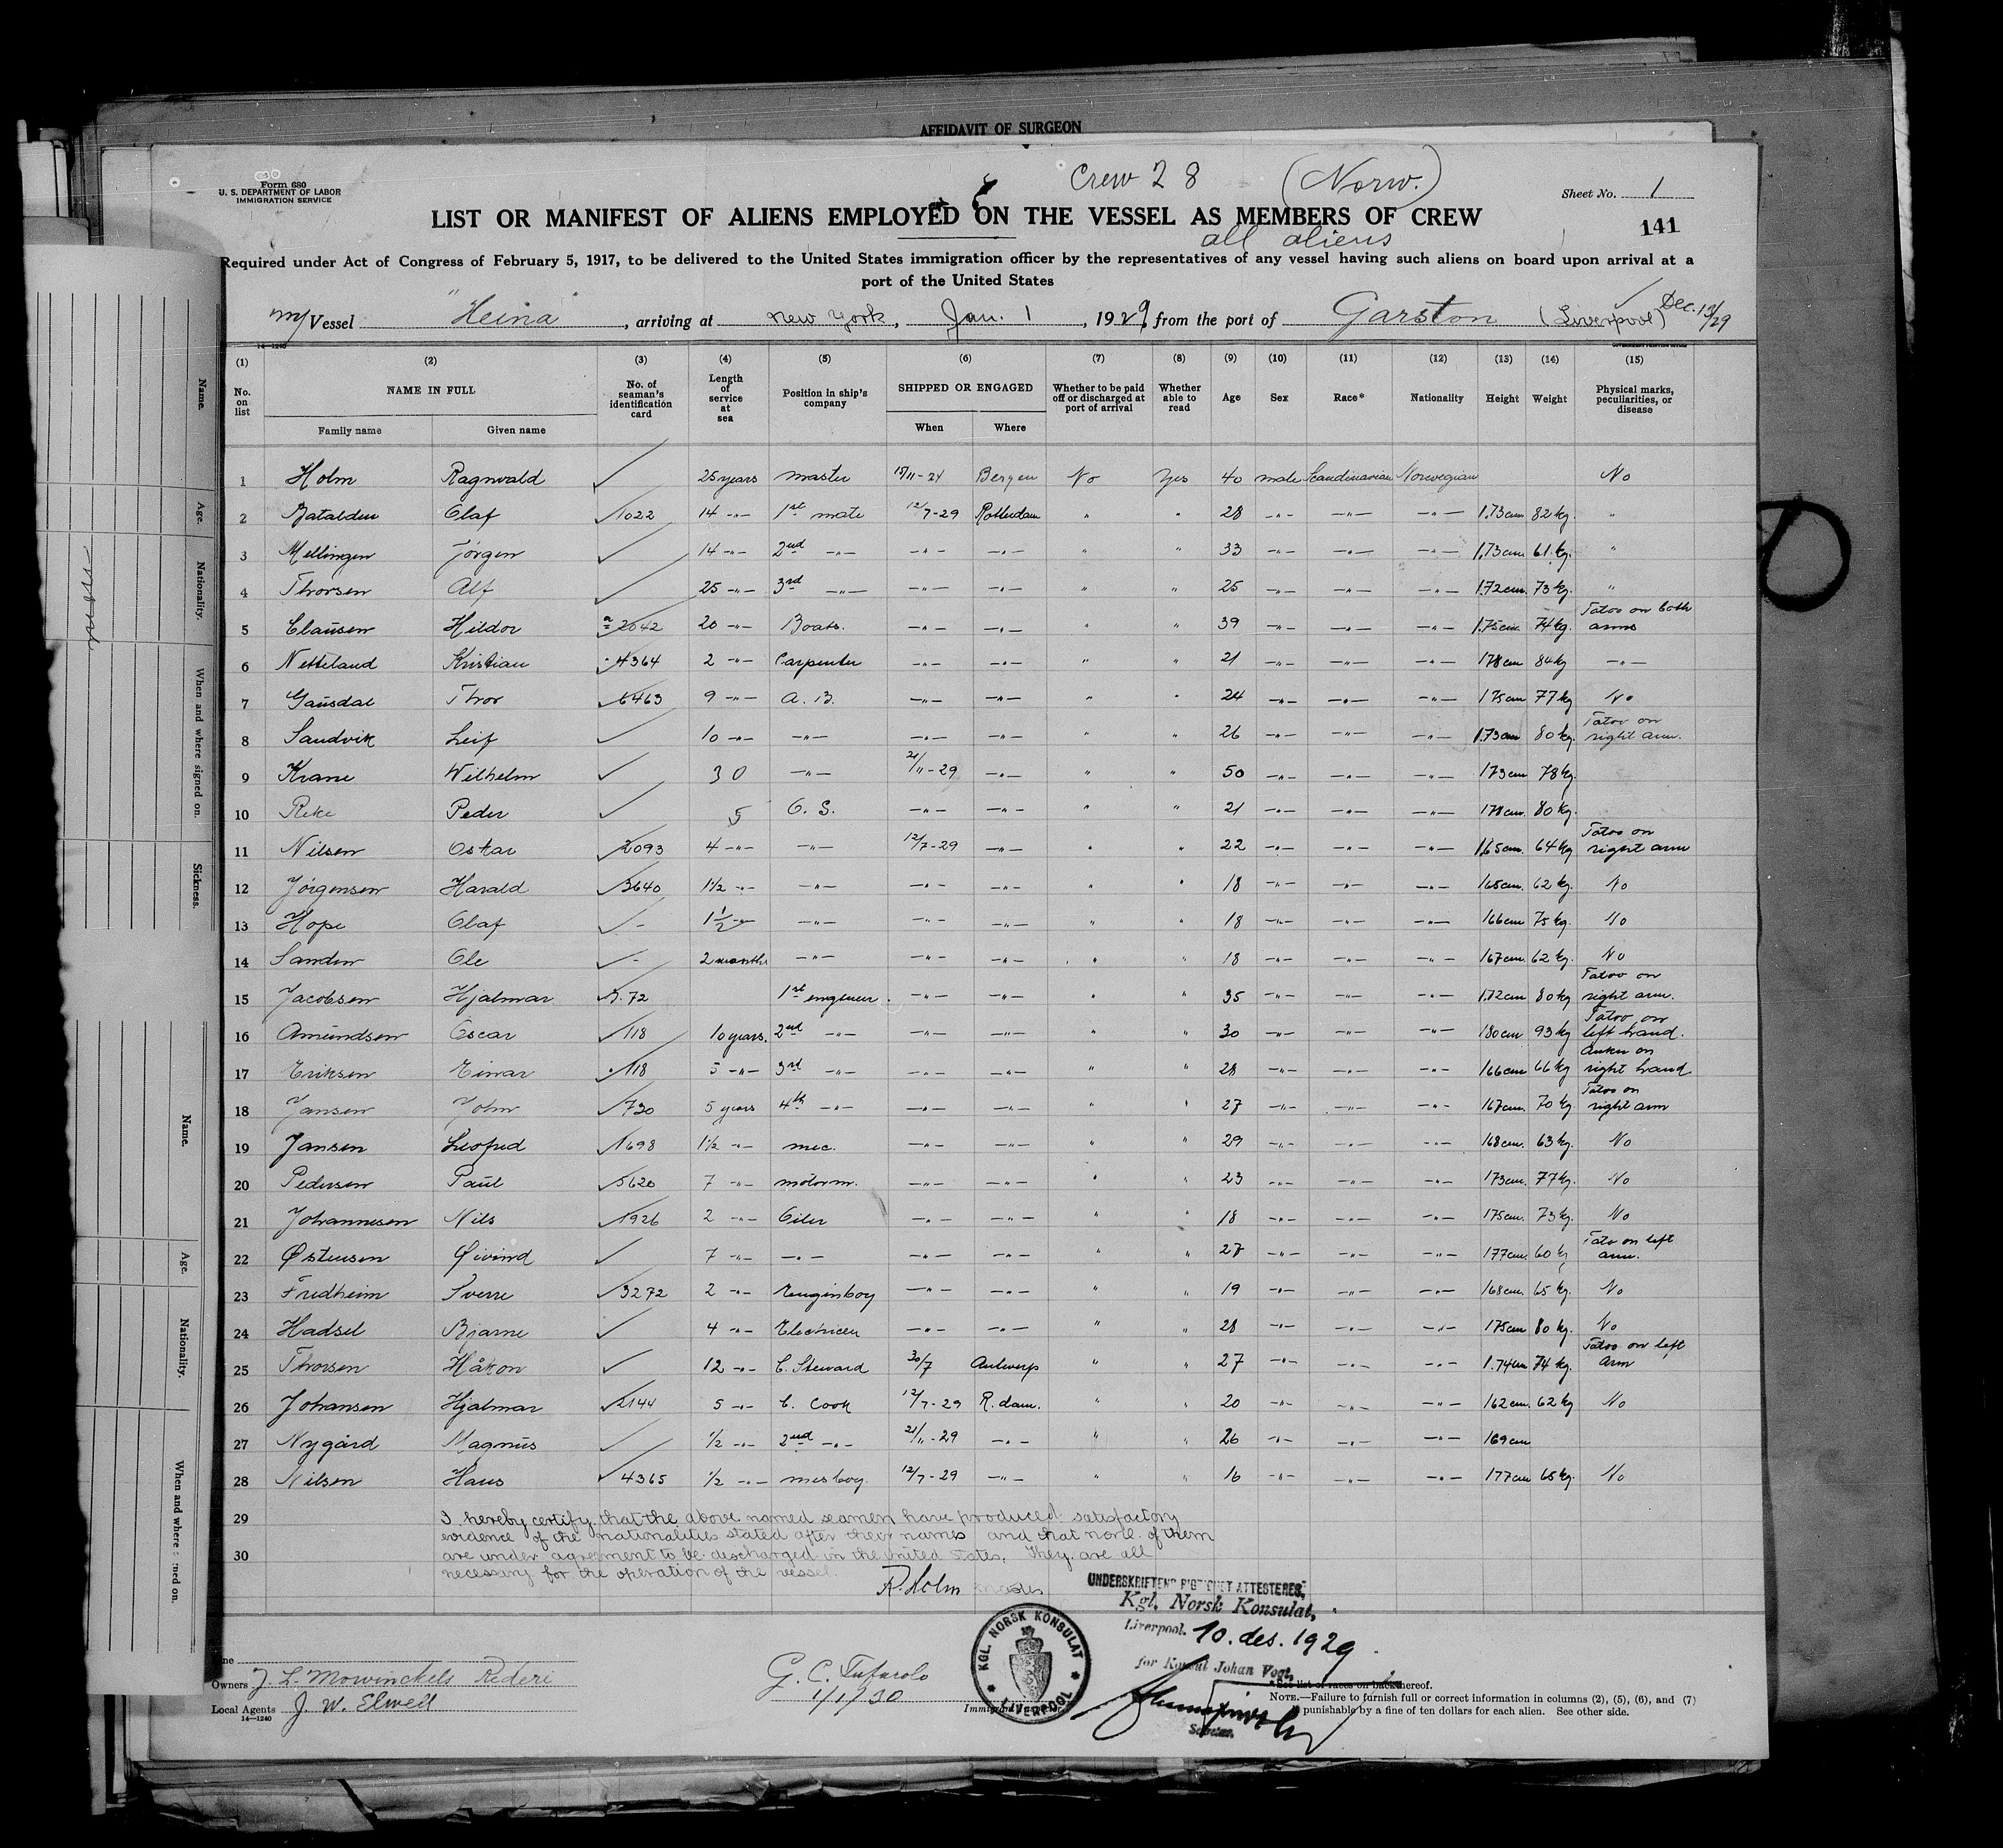 AFFIDAVIT OF SURGEON
Form 680
U. S. DEPARTMENT OF LABOR
IMMIGRATION SERVICE
Crew 28 (Norw.)
Sheet No. 1
LIST OR MANIFEST OF ALIENS EMPLOYED ON THE VESSEL AS MEMBERS OF CREW
141
all aliens
Required under Act of Congress of February 5, 1917, to be delivered to the United States immigration officer by the representatives of any vessel having such aliens on board upon arrival at a
port of the United States
m/ Vessel "Heina", arriving at New York, Jan. 1, 1929, from the port of Garston (Liverpool) Dec. 13/29
14—1240
(1) (2) (3) (4) (5) (6) (7) (8) (9) (10) (11) (12) (13) (14) (15)
No. on list NAME IN FULL Family name Given name No. of seaman's identification card Length of service at sea Position in ship's company SHIPPED OR ENGAGED When Where Whether to be paid off or discharged at port of arrival Whether able to read Age Sex Race* Nationality Height Weight Physical marks, peculiarities, or disease
1 Holm Ragnvald 25 years master 15/11-24 Bergen No Yes 40 male Scandinavian Norwegian No
2 Batalden Olaf 1022 14 -"- 1st mate 12/7-29 Rotterdam " " 28 -"- -"- -"- 1.73cm 82 kg. "
3 Mellingen Jörgen 14 -"- 2nd -"- -"- -"- " " 33 -"- -"- -"- 1.73cm 61 kg. "
4 Thorsen Alf 25 -"- 3rd -"- -"- -"- " " 25 -"- -"- -"- 1.72cm. 73 kg. "
5 Clausen Hildor 2042 20 -"- Boats. -"- -"- " " 39 -"- -"- -"- 1.75cm. 74 kg. Tatoo on both arms
6 Netteland Kristian 4364 2 -"- Carpenter -"- -"- " " 21 -"- -"- -"- 178cm 84 kg -"-
7 Gausdal Thor 6463 9 -"- A. B. -"- -"- " " 24 -"- -"- -"- 175cm 77 kg No
8 Sandvik Leif 10 -"- -"- -"- -"- " " 26 -"- -"- -"- 1.73cm 80 kg. Tatoo on right arm.
9 Krane Wilhelm 30 -"- 21/11-29 -"- " " 50 -"- -"- -"- 173cm 78 kg.
10 Reke Peder 5 O. S. -"- -"- " " 21 -"- -"- -"- 178cm. 80 kg.
11 Nilsen Oskar 2093 4 -"- -"- 12/7-29 -"- " " 22 -"- -"- -"- 1,65cm. 64 kg Tatoo on right arm
12 Jörgensen Harald 3640 1½ -"- -"- -"- -"- " " 18 -"- -"- -"- 165cm. 62 kg. No
13 Hope Olaf - 1½ -"- -"- -"- -"- " " 18 -"- -"- -"- 166cm 75 kg. No
14 Sanden Ole - 2 months -"- -"- -"- " " 18 -"- -"- -"- 167cm. 62 kg. No
15 Jacobsen Hjalmar 72 1st engineer. -"- -"- " " 35 -"- -"- -"- 172cm 80 kg Tatoo on right arm.
16 Amundsen Oscar 118 10 years. 2nd -"- -"- -"- " " 30 -"- -"- -"- 180cm 93 kg Tatoo on left hand.
17 Eriksen Einar 118 5 -"- 3rd -"- -"- -"- " " 28 -"- -"- -"- 166cm 66 kg Anker on right hand
18 Jansen John 730 5 years 4th -"- -"- -"- " " 27 -"- -"- -"- 167cm. 70 kg. Tatoo on right arm
19 Jansen Leofred 1698 1½ -"- mec. -"- -"- " " 29 -"- -"- -"- 168cm. 63 kg. No
20 Pedersen Paul 5620 7 -"- motorm. -"- -"- " " 23 -"- -"- -"- 173cm. 77 kg. No
21 Johannesen Nils 1926 2 -"- Oiler -"- -"- " " 18 -"- -"- -"- 175cm. 73 kg. No
22 Østensen Øivind 7 -"- -"- -"- -"- " " 27 -"- -"- -"- 177cm. 60 kg Tato on left arm.
23 Fredheim Sverre 3272 2 -"- Enginboy -"- -"- " " 19 -"- -"- -"- 168cm. 65 kg. No
24 Hadsel Bjarne 4 -"- Electricen -"- -"- " " 28 -"- -"- -"- 175cm 80 kg. No
25 Thorsen Håkon 12 -"- C. Steward 30/7 Antwerp " " 27 -"- -"- -"- 1.74cm 74 kg. Tatoo on left arm
26 Johansen Hjalmar 2144 5 -"- C. Cook 12/7-29 R.dam. " " 20 -"- -"- -"- 162cm. 62 kg No
27 Nygård Magnus ½ -"- 2nd -"- 21/11-29 -"- " " 26 -"- -"- -"- 169cm
28 Nilsen Hans 4365 ½ -"- mesboy. 12/7-29 -"- " " 16 -"- -"- -"- 177cm 65 kg. No
29 I hereby certify that the above named seamen have produced satisfactory
evidence of the nationalities stated after their names and that none of them
30 are under agreement to be discharged in the United States. They are all
necessary for the operation of the vessel.
R. Holm master
UNDERSKRIFTENS RIGTIGHET ATTESTERES,
Kgl. Norsk Konsulat,
Liverpool. 10. des. 1929.
for Konsul Johan Vogt,
KGL. NORSK KONSULAT
LIVERPOOL
Owners J. L. Mowinckels Rederi
Local Agents J. W. Elwell
14—1240
G. C. Tufarolo
1/1/30
* See list of races on back hereof.
NOTE.—Failure to furnish full or correct information in columns (2), (5), (6), and (7)
punishable by a fine of ten dollars for each alien. See other side.
Name.
Age.
Nationality.
When and where signed on.
Sickness.
Name.
Age.
Nationality.
When and where signed on.